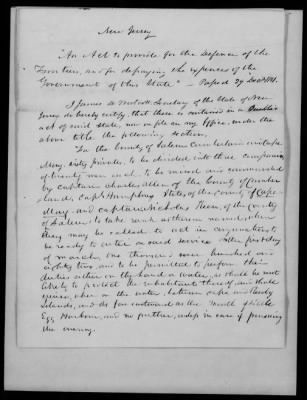 New Jersey
"An Act to provide for the Defence of the
Frontiers, and for defraying the expences of the
Government of this State." – Passed 29 Decr 1781.
I James D. Westcott Secretary of the State of New
Jersey do hereby certify, that there is contained in a
act of said State, now on file in my office, under the
above title the following section,
"In the County of Salem one
sixty privates, to be divided into three companies
of twenty men each, to be raised and commanded
by captain Charles Allen of the County of Cumber
land, capt Humphrey Stites, of the county of Cape
May and captain Nicholas Keen, of the county
of Salem, to take rank as therein named, when
they may be called to act in conjunction; to
be ready to enter on said service the first day
of march, one thousand seven hundred and
eighty two, and to be permitted to perform their
duties either on the land or water, as shall be most
likely to protect the inhabitants thereof, and shall
, when on the water, between cape and Reedy
Islands, and as far eastward as the mouth of little
Egg Harbour, and no further, unless in case of pursuing
the enemy.